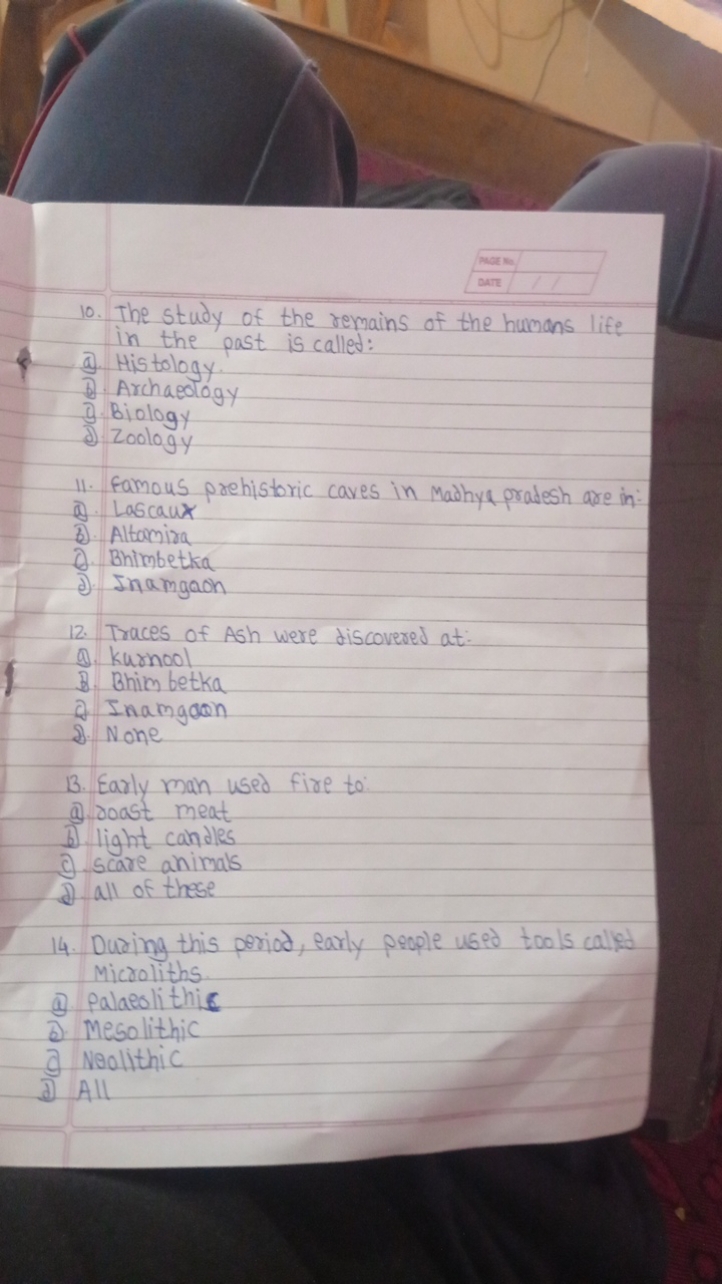 PAGE No.
DATE / /
10. The study of the remains of the humans life
in the past is called:
a. Histology.
b. Archaeology
c. Biology
d. Zoology
11. Famous prehistoric caves in Madhya pradesh are in:
a. Lascaux
b. Altamira
c. Bhimbetka
d. Inamgaon
12. Traces of Ash were discovered at:
a. kurnool
B. Bhimbetka
c. Inamgaon
d. None
13. Early man used fire to:
a. roast meat
b. light candles
c. scare animals
d. all of these
14. During this period, early people used tools called
Microliths.
a. Palaeolithic
b. Mesolithic
c. Neolithic
d. All